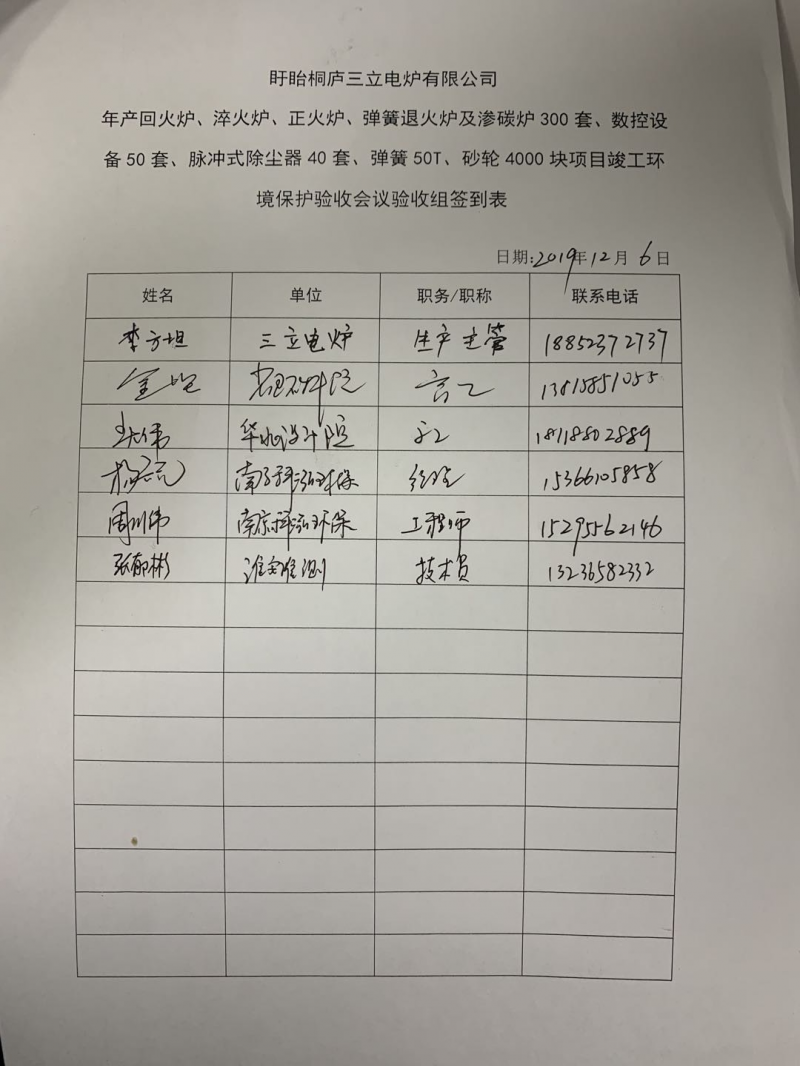 盱眙桐庐三立电炉有限公司
年产回火炉、淬火炉、正火炉、弹簧退火炉及渗碳炉 300 套、数控设
备 50 套、脉冲式除尘器 40 套、弹簧 50T、砂轮 4000 块项目竣工环
境保护验收会议验收组签到表
日期:2019年12月6日
姓名 单位 职务/职称 联系电话
李方坦 三立电炉 生产主管 18852372737
高工 13815851055
伟 设计院 18118802889
南京科泓环保 经理 15366105858
周川伟 南京科泓环保 工程师 15295562146
张郁彬 技术员 13236582332